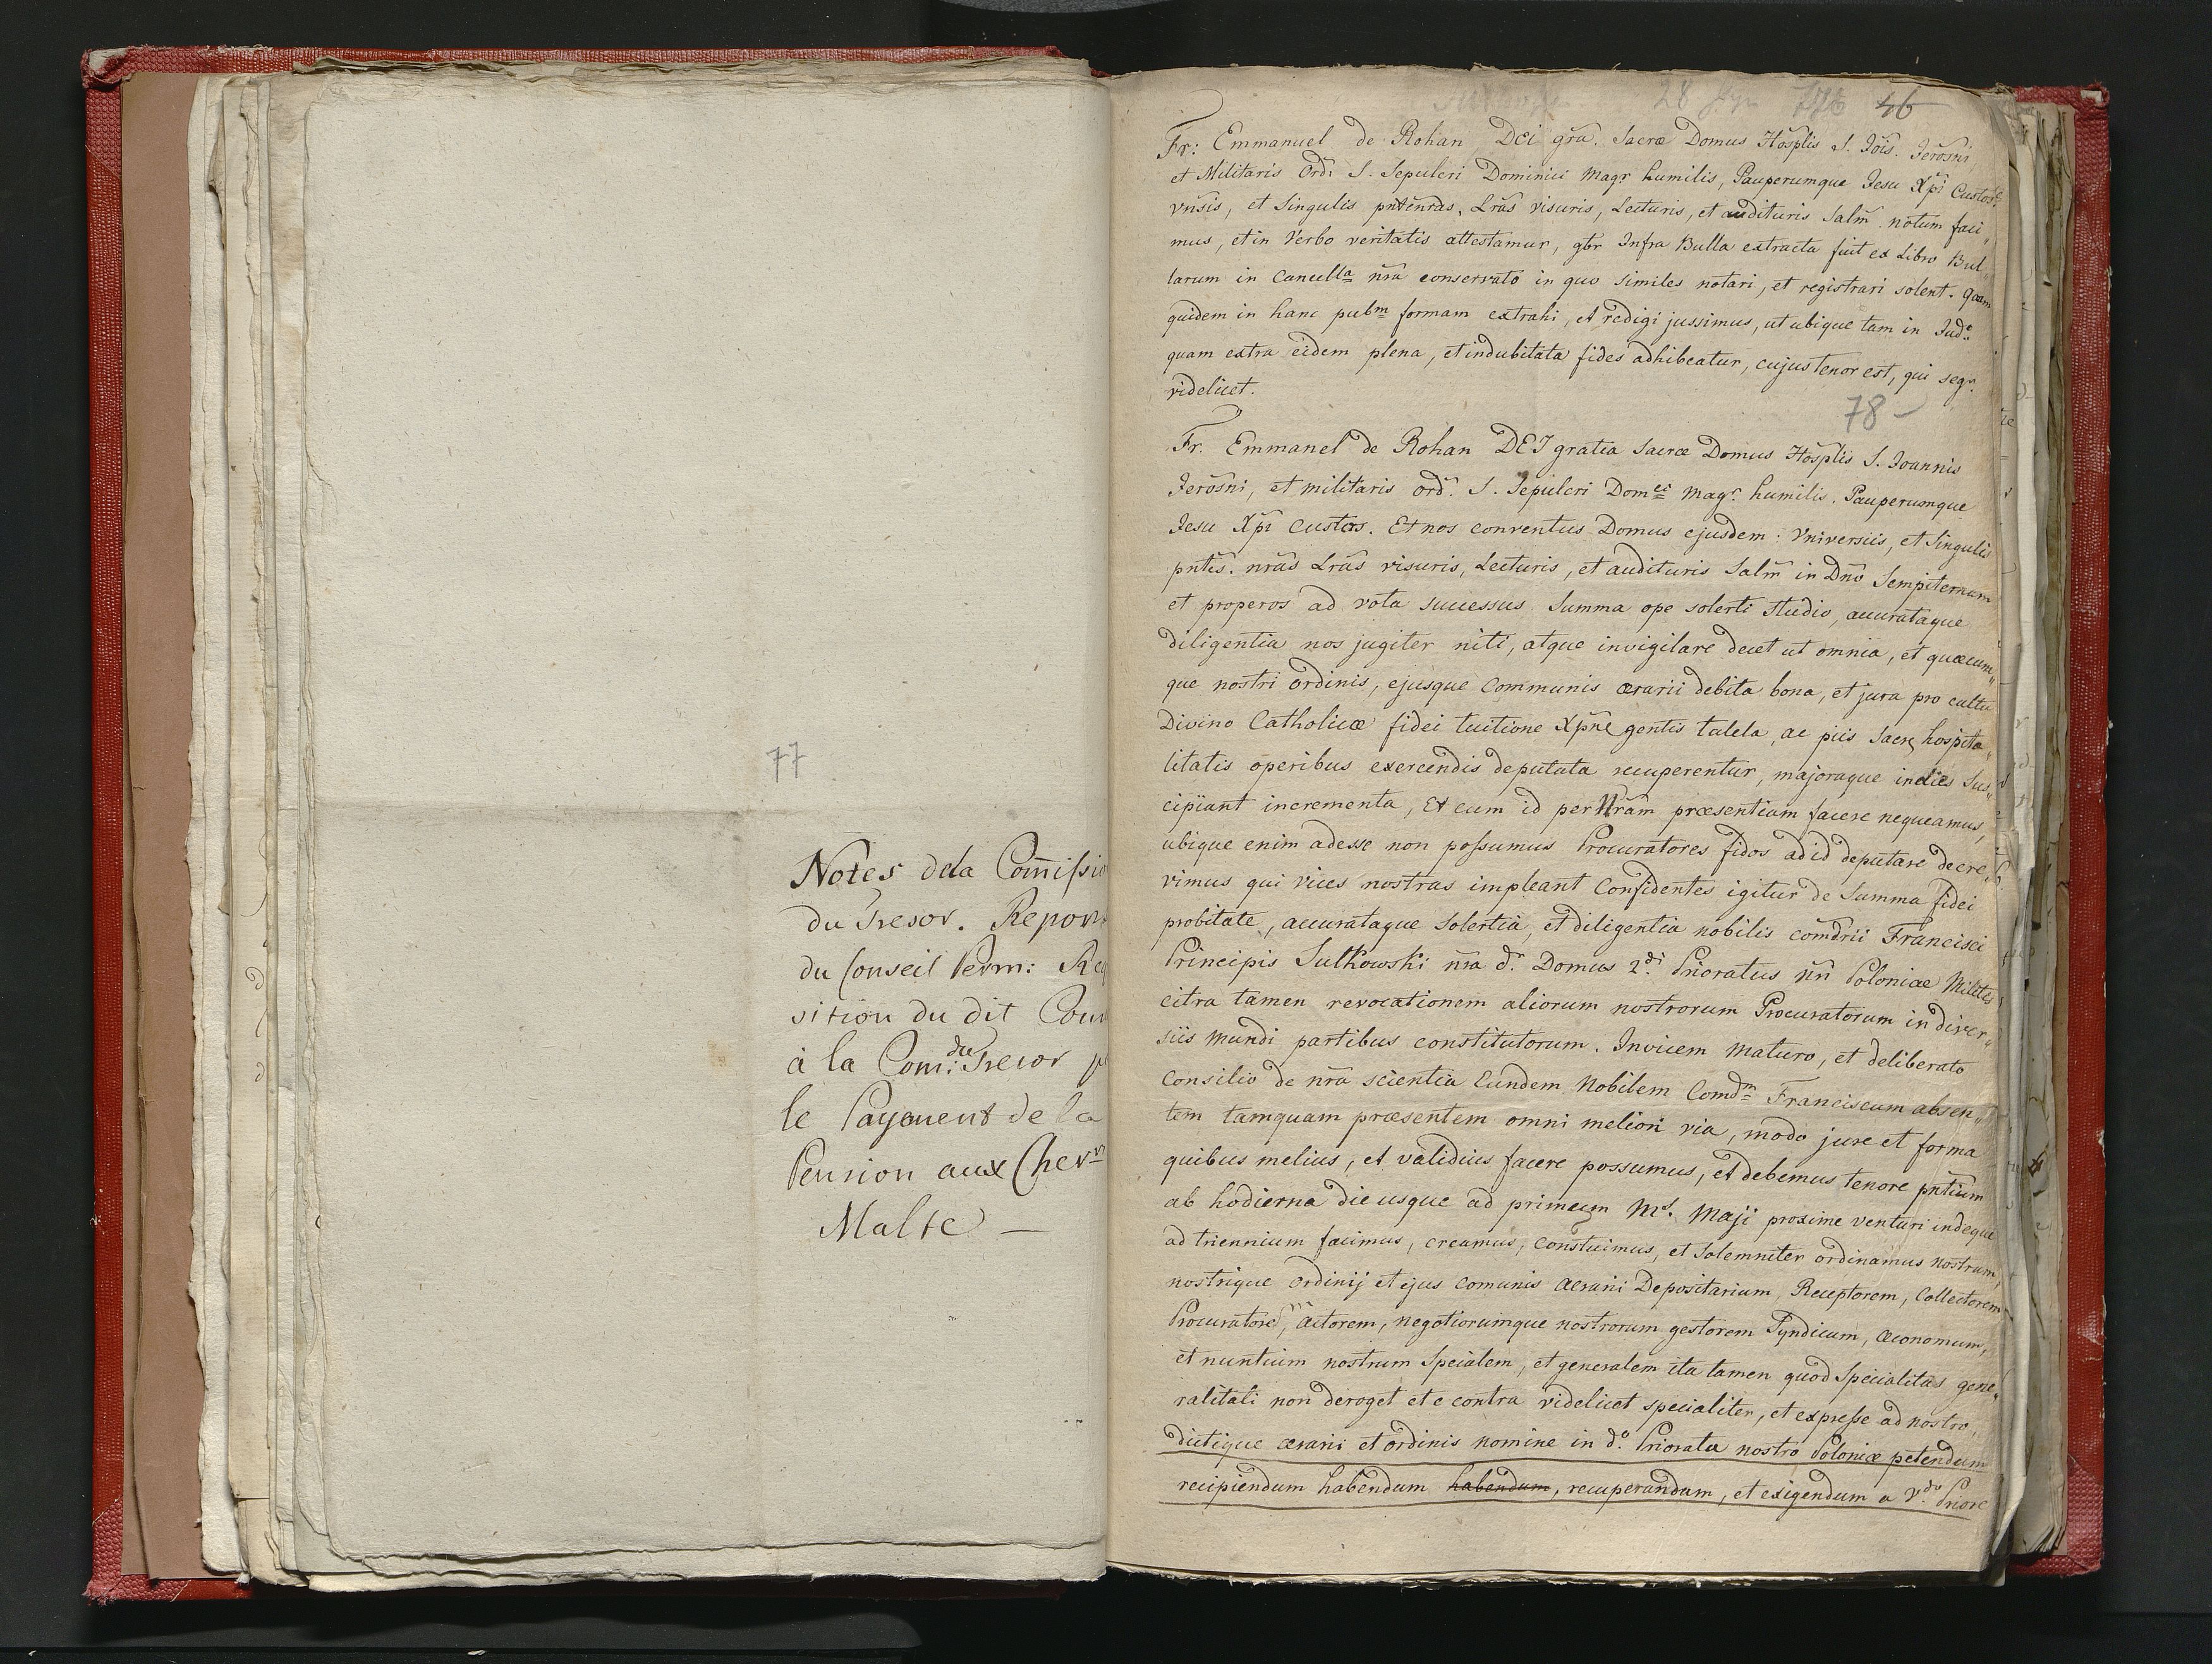 77
Notes dela Com̄ißio
du Tresor. Repon
du Conseil Perm: Req
sition du dit Con
à la Com: du Tresor p
le Payement de la
Pension aux Chevrs
Malte —
28 46
Fr: Emmanuel de Rohan DEi gr̄a. Sacræ Domus Hosp̄lis S. Jōis. Jerōsni
et Militaris Ord: S. Sepulcri Dominici Magr humilis, Pauperumque Jesu Xp̄i Custos
Vn̄sis, et Singulis pn̄tēnras, Lr̄as visuris, Lecturis, et audituris Salm̄ notum faci„
mus, et in Verbo veritatis attestamur, qtr Infra Bulla extracta fuit ex Libro Bul„
larum in Cancella nr̄a conservato in quo similes notari, et registrari solent. Quam
quidem in hanc pubm formam extrahi, et redigi jussimus, ut ubique tam in Jude
quam extra eidem plena, et indubitata fides adhibeatur, cujus tenor est, qui seqr
videlicet.
78 –
Fr. Emmanel de Rohan DEI gratia Sacræ Domus Hosp̄lis S. Joannis
Jerōsni, et militaris ord. S. Sepulcri Domci Magr humilis, Pauperumque
Jesu Xp̄i Custos. Et nos conventus Domus ejusdem: Universiis, et Singulis
pn̄tes. nr̄as Lr̄as visuris, Lecturis, et audituris Salm̄ in Dn̄o Sempiternam
et properos ad vota successus. Summa ope solerti studio, accurataque
diligentia nos jugiter niti, atque invigilare decet ut omnia, et quæcum„
que nostri ordinis, ejusque Communis ærarii debita bona, et jura pro cultu
Divino Catholicæ fidei tuitione Xp̄ne gentis tutela, ac piis Sacre hospita„
litatis operibus exercendis deputata recuperentur, majoraque indies Sus„
cipiant incrementa, Et cum id per Nr̄am præsentiam facere nequeamus,
ubique enim adesse non poßumus Procuratores fidos ad id deputare decre„
vimus qui vices nostras impleant Confidentes igitur de Summa fidei
probitate, accurataque Solertia, et diligentia nobilis com̄drii Francisci
Principis Sulkowski nr̄a d. Domus 2di Prioratus nr̄i Poloniae Militis
citra tamen revocationem aliorum nostrorum Procuratorum in diver„
siis mundi partibus constitutorum. Invicem Maturo, et deliberato
Consilio de nr̄a scientia Eundem Nobilem Comdm Franciscum absen„
tem tamquam præsentem omni meliori via, modo jure et forma
quibus melius, et validius facere possumus, et debemus tenore pn̄tium
ab hodierna die usque ad primum Ms. Maji proxime venturi indeque
ad triennium facimus, creamus, constuimus, et Solemniter ordinamus nostrum,
nostrique ordinij et ejus comunis Aerarii Depositarium, Receptorem, Collectorem
Procuratore͞m, Actorem, negotiorumque nostrorum gestorem Syndicum, œconomum,
et nuntium nostrum Specialem, et generalem ita tamen quod Specialitas gene„
ralitati non deroget et e contra videlicet specialiter, et expreße ad nostro,
dictique ærarii et ordinis nomine in do. Prioratu nostro Poloniæ petendum
recipiendum habendum habendum, recuperandum, et exigendum a Vdo Priore